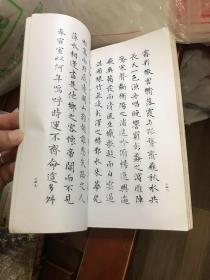 霽彩徹雲衢落霞与孤鶩齊飛秋水共
長天一色漁舟唱晚響窮彭蠡之濱雁陣
驚寒聲斷衡陽之浦遙吟俯暢逸興遄
飛爽籟發而清風生纖歌凝而白雲遏
睢園綠竹氣凌彭澤之樽鄴水朱華光
關山難越誰悲失路之人
萍水相逢盡是他鄉之客懷帝閽而不見
奉宣室以何年嗚呼時運不齊命途多舛